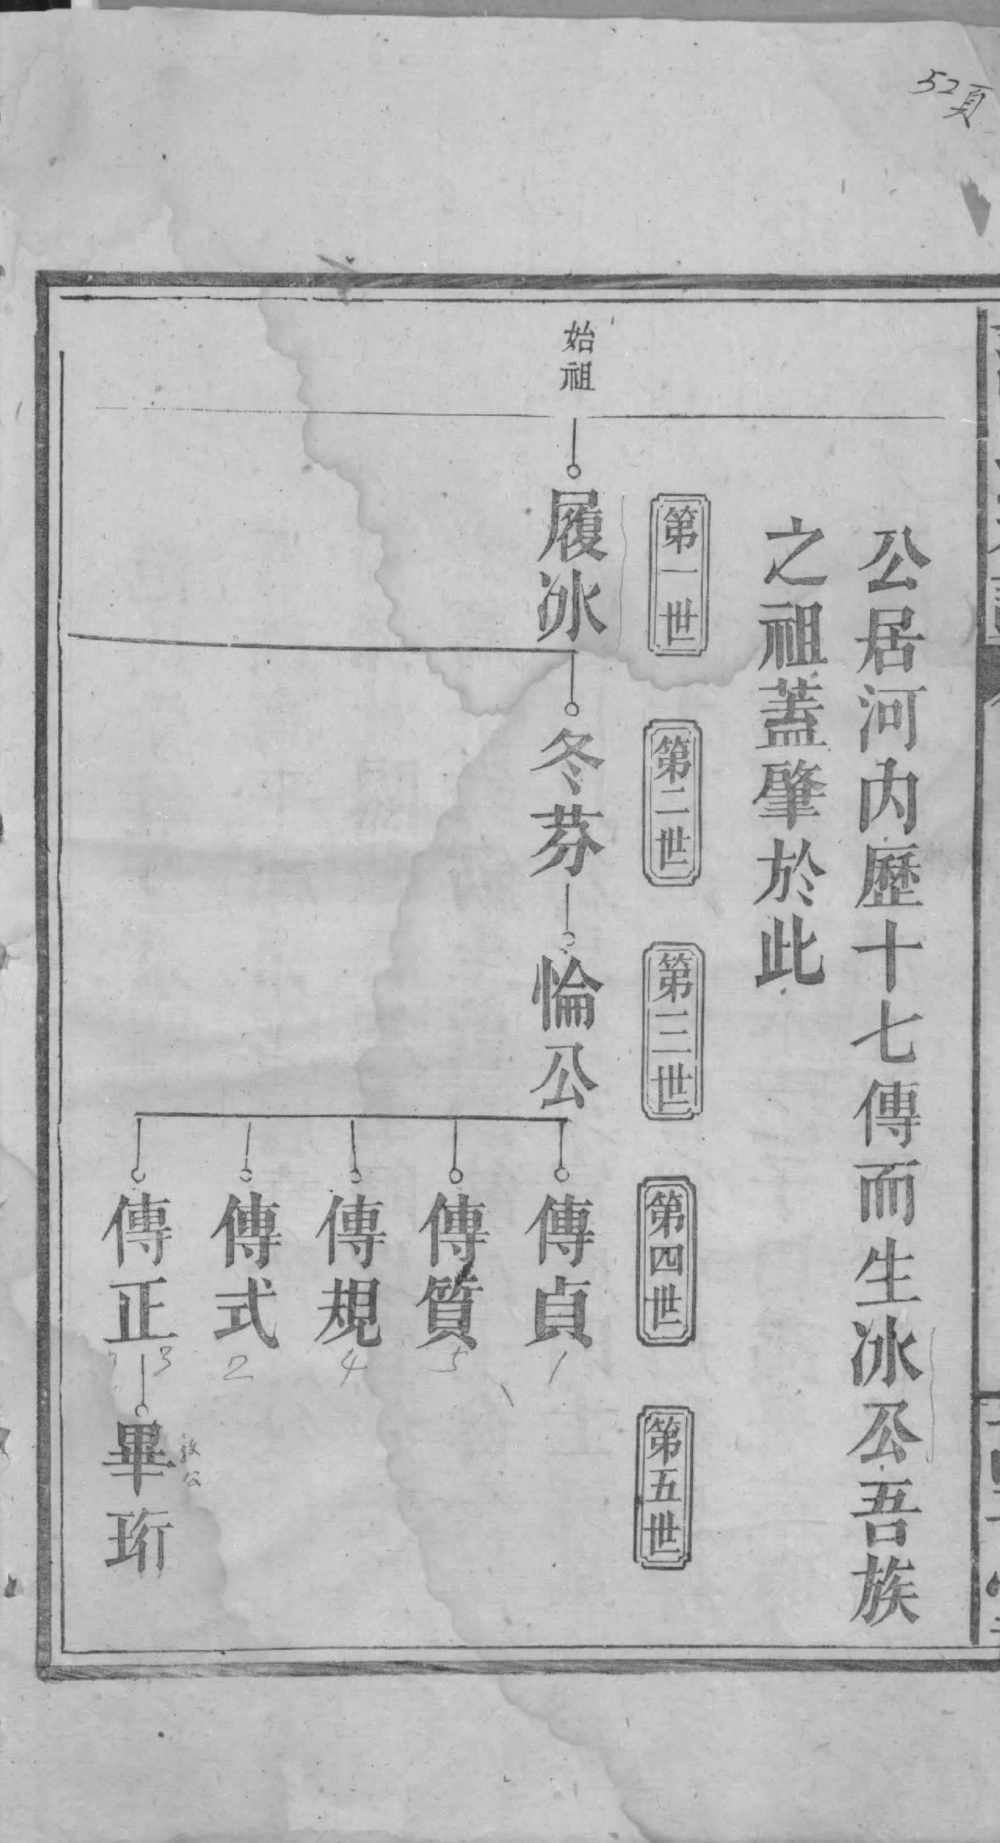 52頁
公居河内歷十七傳而生冰公吾族
之祖蓋肇於此
第一世
第二世
第三世
第四世
第五世
始祖
履冰
冬芬
惀公
傳貞
1
傳質
5
傳規
4
傳式
2
傳正
3
畢珩